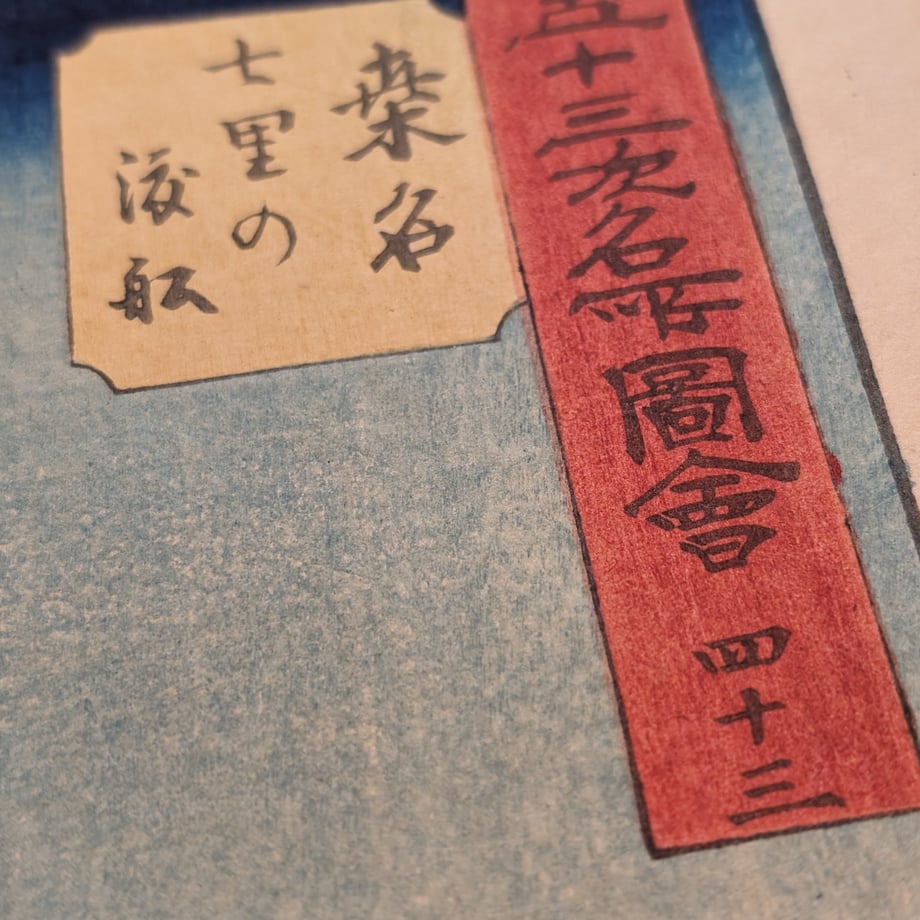 五十三次名所圖會 四十三
桑名
七里の
渡舩